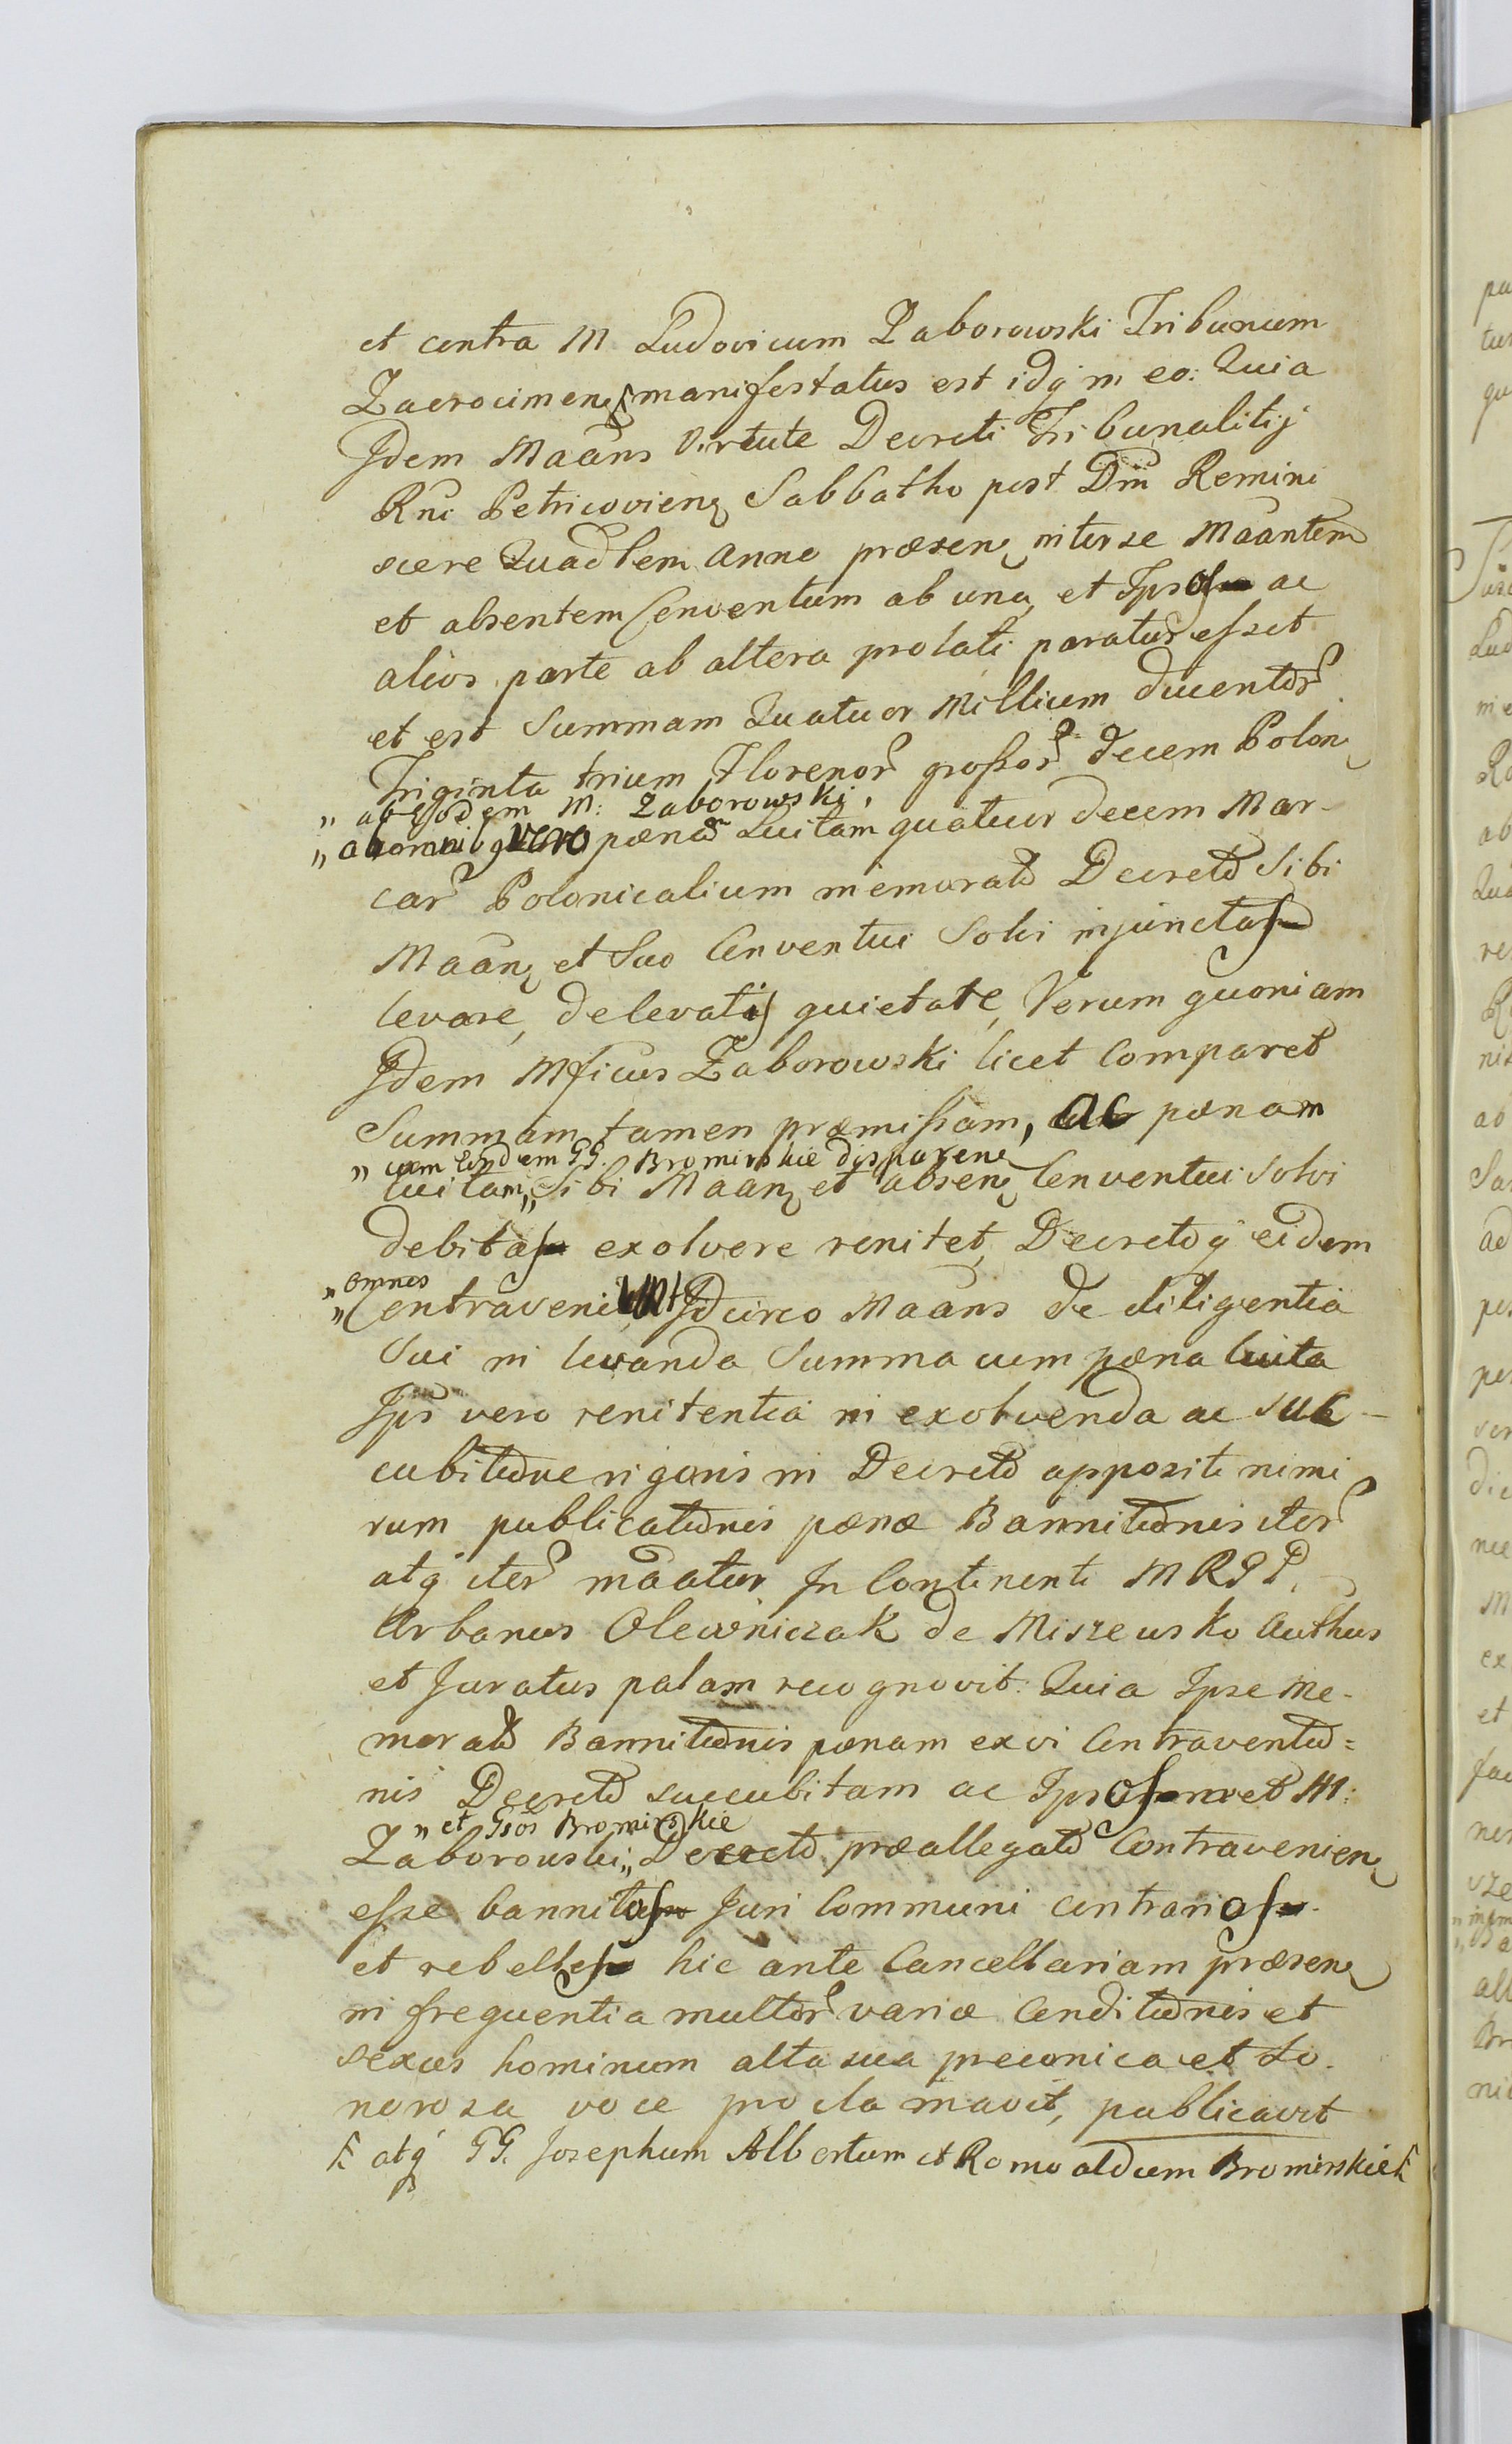 et contra M Ludovicum Zaborowski Tribunum
Zacrocimen manifestatus est idq in eo: Quia
Idem Maans Virtute Decreti Tribunalitij
Rni Petricovien Sabbatho post Dni Remini
scere Quadlem Anno præsen inter se Maantem
et absentem Conventum ab una, et Ipsos ac
alios parte ab altera prolati paratus esset
et est Summam Quatuor Millium ducentor
Triginta trium Florenor grossor decem Polon
„ ab eodem M: Zaborowski,
„ ab omnibq vero pænam Luitam quatuor decem Mar-
car Polonicalium memorato Decreto Sibi
Maan et Suo Conventui Solvi injunctas
levare, de levatis quietate, Verum quoniam
Idem Mficus Zaborowski licet Comparet
Summam tamen præmissam, ac pænam
„ cum eisdem GG. Bromirskie disparen
luitam„ Sibi Maan et absen Conventui Solvi
debitas exolvere renitet, Decretoq eidem
„ omnes
„ Contraveniunt Idcirco Maans de diligentia
Sui in levanda Summa cum pæna luita
Ips vero renitentia in exolvenda ac suc-
cubitione rigoris in Decreto appositi nimi
rum publicationis pænæ Bannitionis iter
atq iter maatur In Continenti MRGD.
Urbanus Olewniczak de Miszewsko Authus
et Juratus palam recognovit: Quia Ipse Me-
morato Bannitionis pænam ex vi Contraventio=
nis Decreto succubitam ac Ipsos met M:
„ et Gsos Bromirskie
Zaborowski„ Decreto præallegato Contravenien
esse bannitos Juri Communi contrarios
et rebelles hic ante Cancellariam præsen
in frequentia multor variæ Conditionis et
sexus hominum alta sua preconica et So
norosa voce proclamavit, publicavit
F. atq GG. Josephum Albertum et Romoaldum Bromirskie F